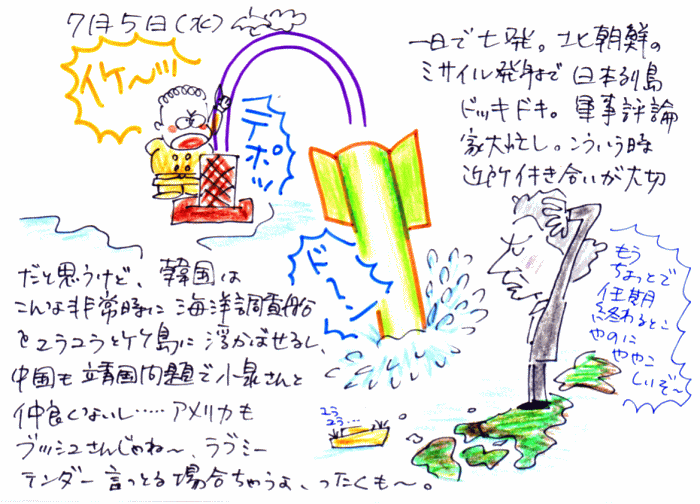 7月5日(水)
イケ〜ッ
テポッ
一日で七発。北朝鮮の
ミサイル発射で日本列島
ドッキドキ。軍事評論
家大忙し。こういう時
近所付き合いが大切
ド〜ン
もう
ちょっとで
任期
終わるとこ
やのに
ややこ
しいぞ〜
だと思うけど、韓国は
こんな非常時に海洋調査船
をユラユラとケケ島に浮かばせるし、
中国も靖国問題で小泉さんと
仲良くないし・・・・・アメリカも
ブッシュさんじゃね〜、ラブミー
テンダー言っとる場合ちゃうよ、ったくも〜。
ユラ
ユラ…